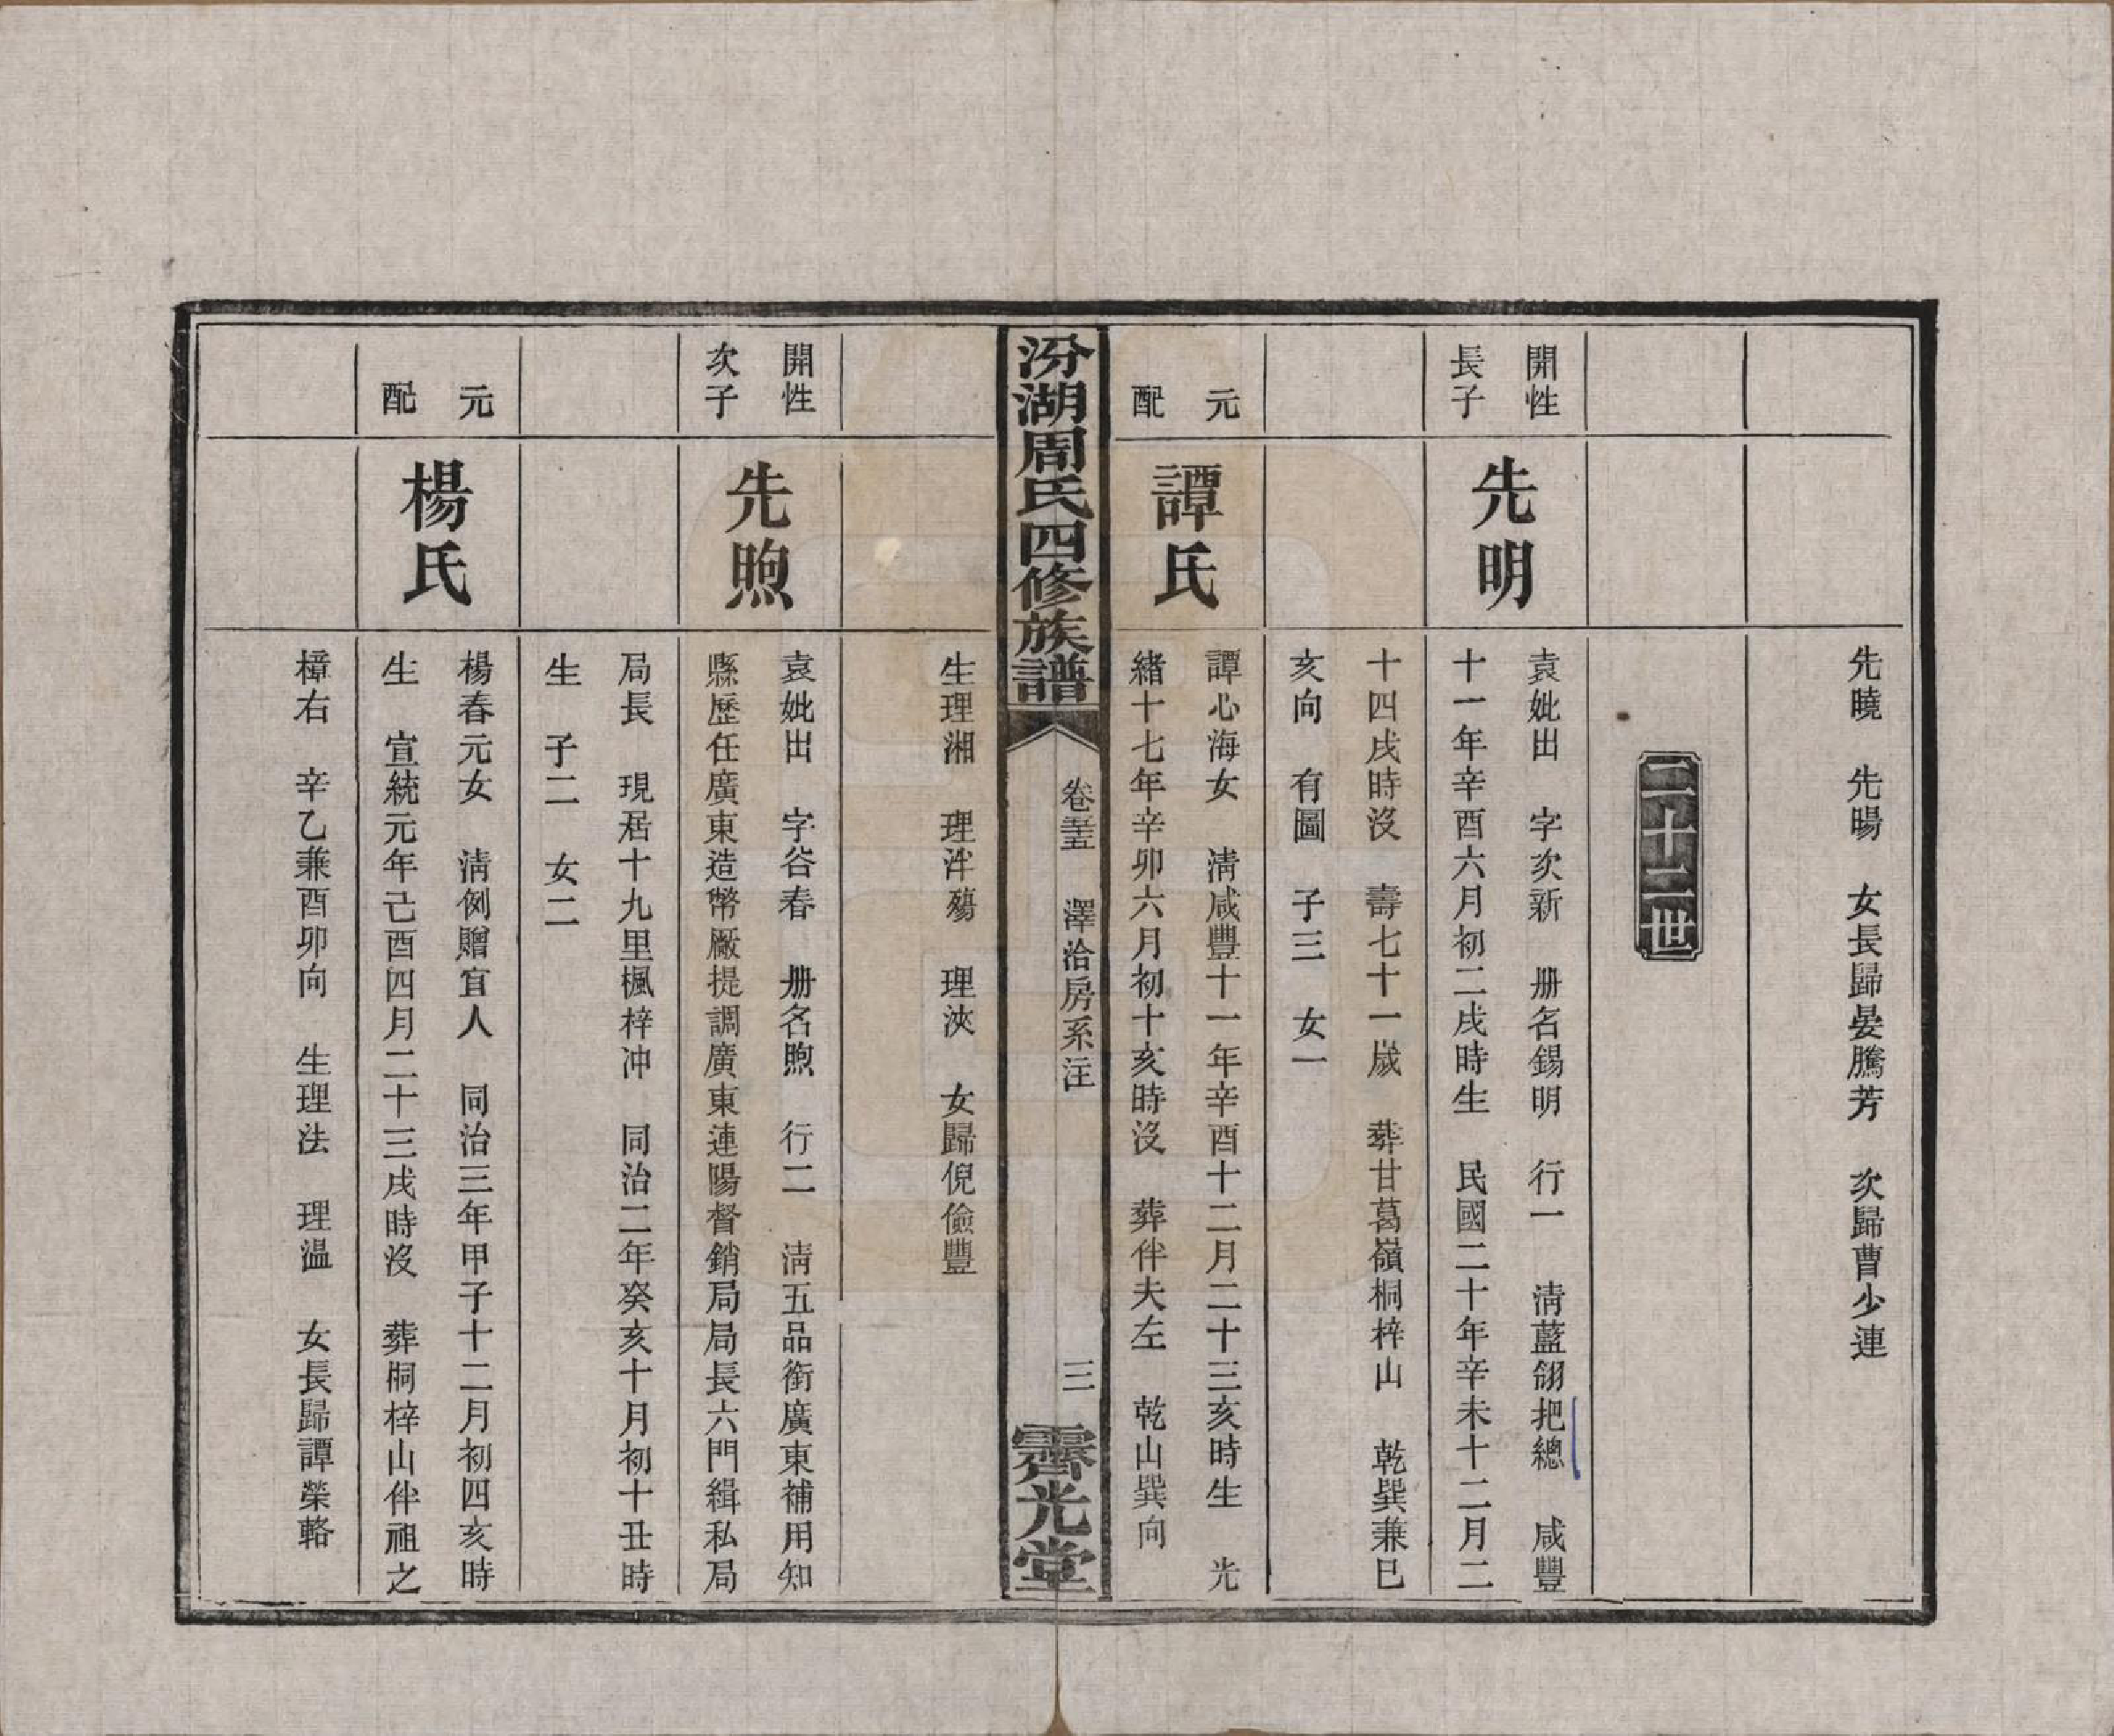 先曉　先暘　女長歸晏騰芳　次歸曹少連
二十二世
開性
長子
先明
袁妣出　字次新　册名錫明　行一　清藍翎把總　咸豐
十一年辛酉六月初二戌時生　民國二十年辛未十二月二
十四戌時沒　壽七十一歲　葬甘葛嶺桐梓山　乾巽兼巳
亥向　有圖　子三　女一
元
配
譚氏
譚心海女　清咸豐十一年辛酉十二月二十三亥時生　光
緒十七年辛卯六月初十亥時沒　葬伴夫左　乾山巽向
汾湖周氏四修族譜
澤洽房系注
三
霽光堂
生理湘　理泮殤　理浹　女歸倪儉豐
開性
次子
先煦
袁妣出　字谷春　册名煦　行二　清五品銜廣東補用知
縣歷任廣東造幣廠提調廣東連陽督銷局局長六門緝私局
局長　現居十九里楓梓冲　同治二年癸亥十月初十丑時
生　子二　女二
元
配
楊氏
楊春元女　清例贈宜人　同治三年甲子十二月初四亥時
生　宣統元年己酉四月二十三戌時沒　葬桐梓山伴祖之
樟右　辛乙兼酉卯向　生理法　理温　女長歸譚榮輅